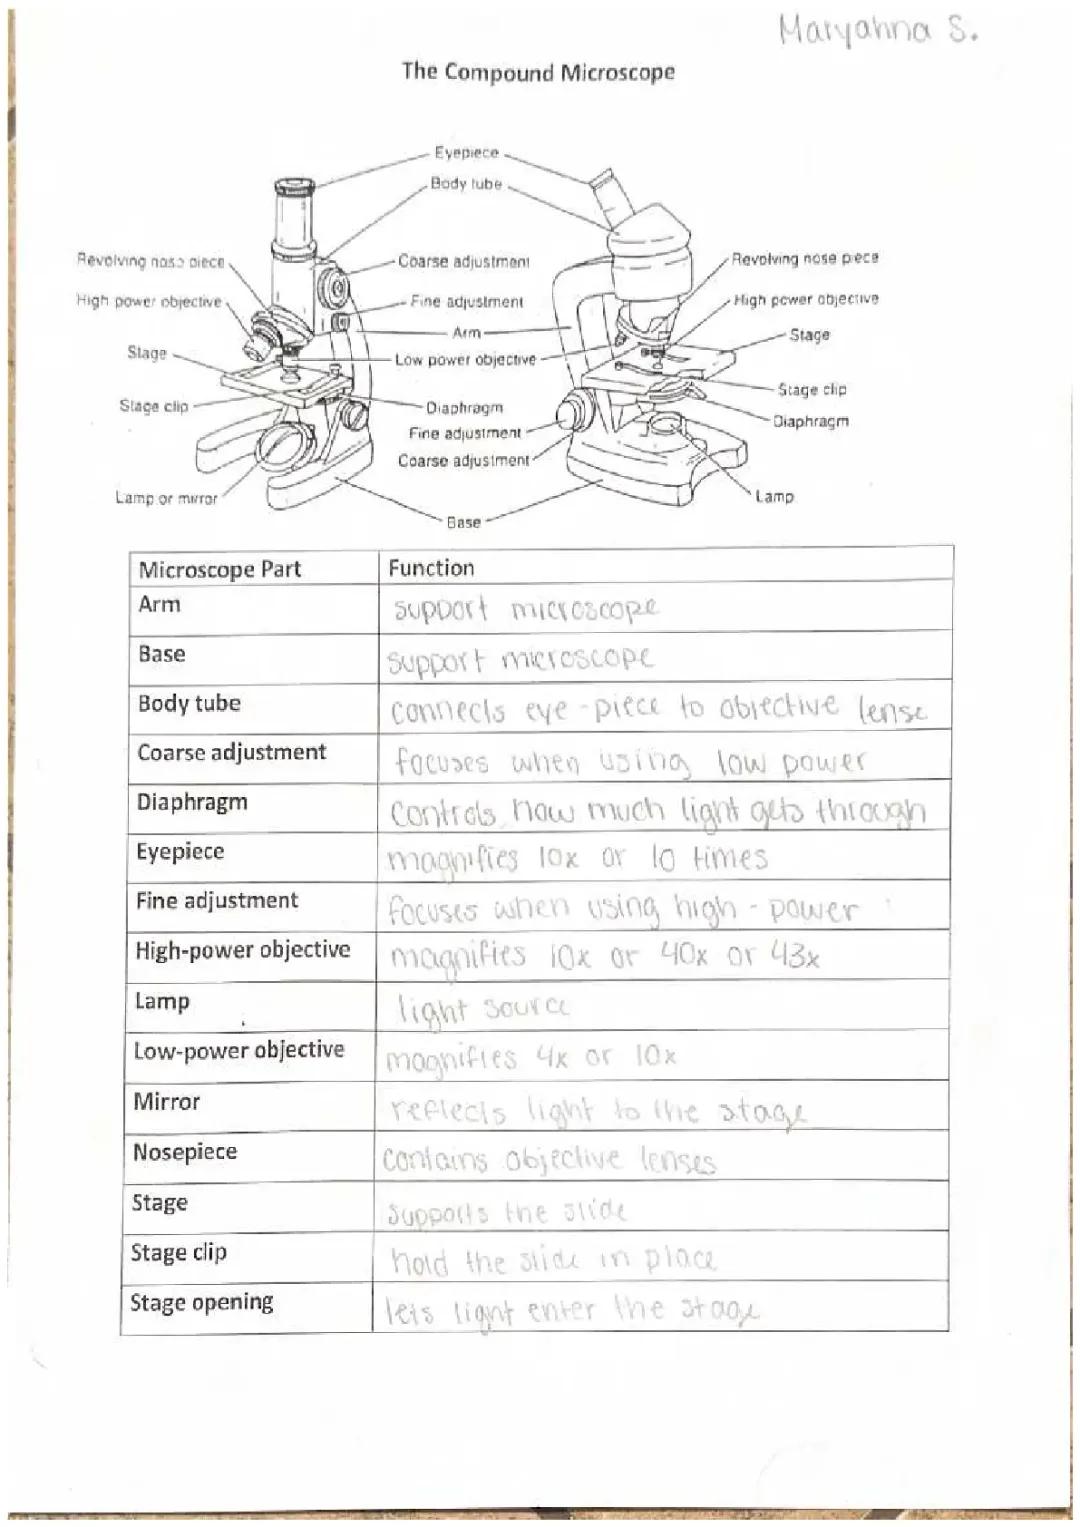 Maryahna S.
The Compound Microscope
Eyepiece
Body tube
Revolving nose piece
Coarse adjustment
Revolving nose piece
High power objective
Fine adjustment
High power objective
Arm
Stage
Stage
Low power objective
Stage clip
Diaphragm
Stage clip
Fine adjustment
Diaphragm
Coarse adjustment
Lamp or mirror
Lamp
Base
Microscope Part Function
Arm support microscope
Base support microscope
Body tube connects eye-piece to objective lense
Coarse adjustment focuses when using low power
Diaphragm controls how much light gets through
Eyepiece magnifies 10x or 10 times
Fine adjustment focuses when using high-power
High-power objective magnifies 10x or 40x or 43x
Lamp light source
Low-power objective magnifies 4x or 10x
Mirror reflects light to the stage
Nosepiece contains objective lenses
Stage supports the slide
Stage clip hold the slide in place
Stage opening lets light enter the stage